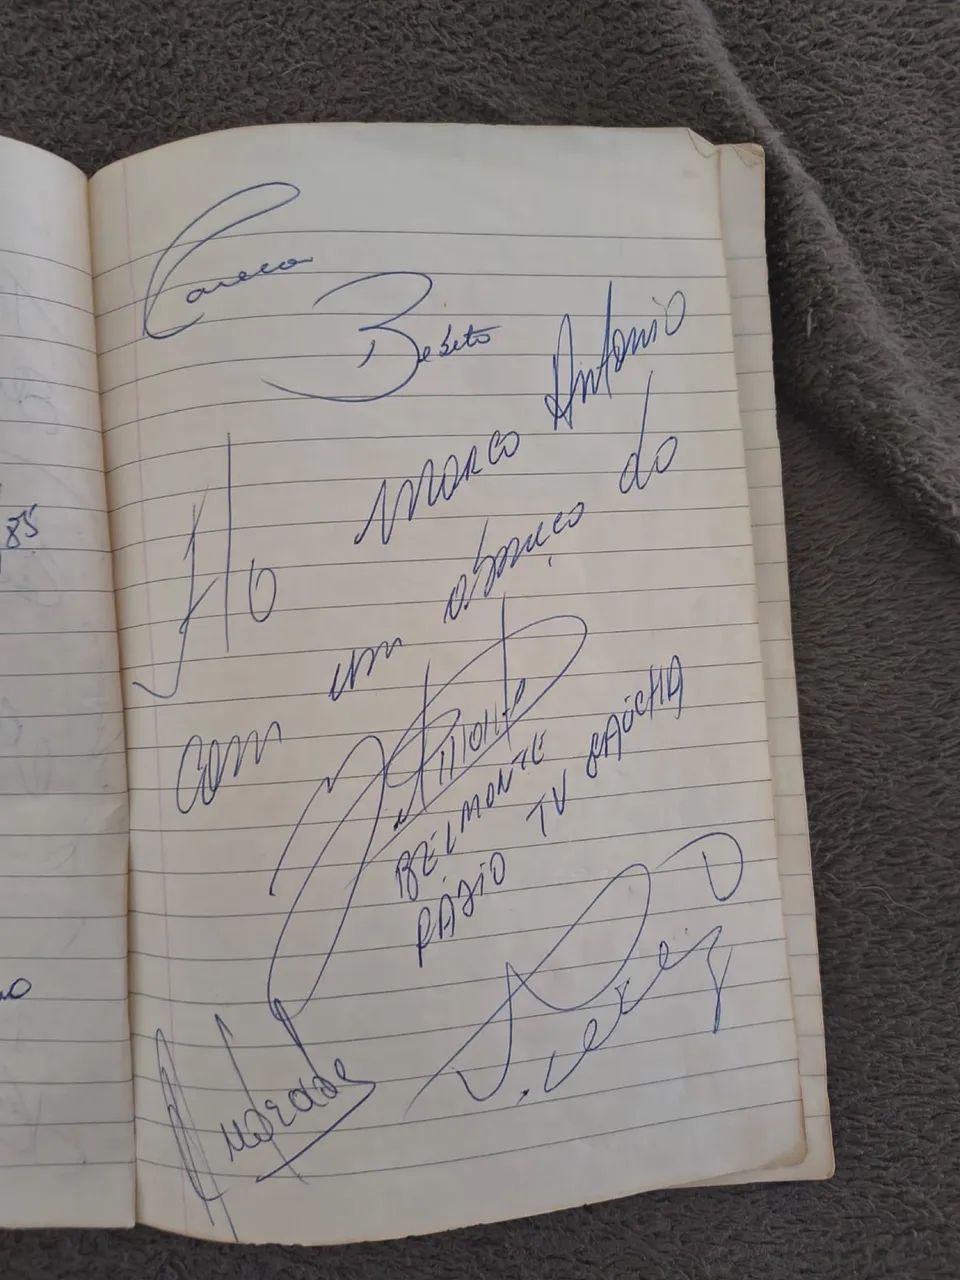 Careca
Bebeto
Ao Marco Antonio
com um abraço do
Belmonte
BELMONTE
RÁDIO TV GAÚCHA
Andrade
85